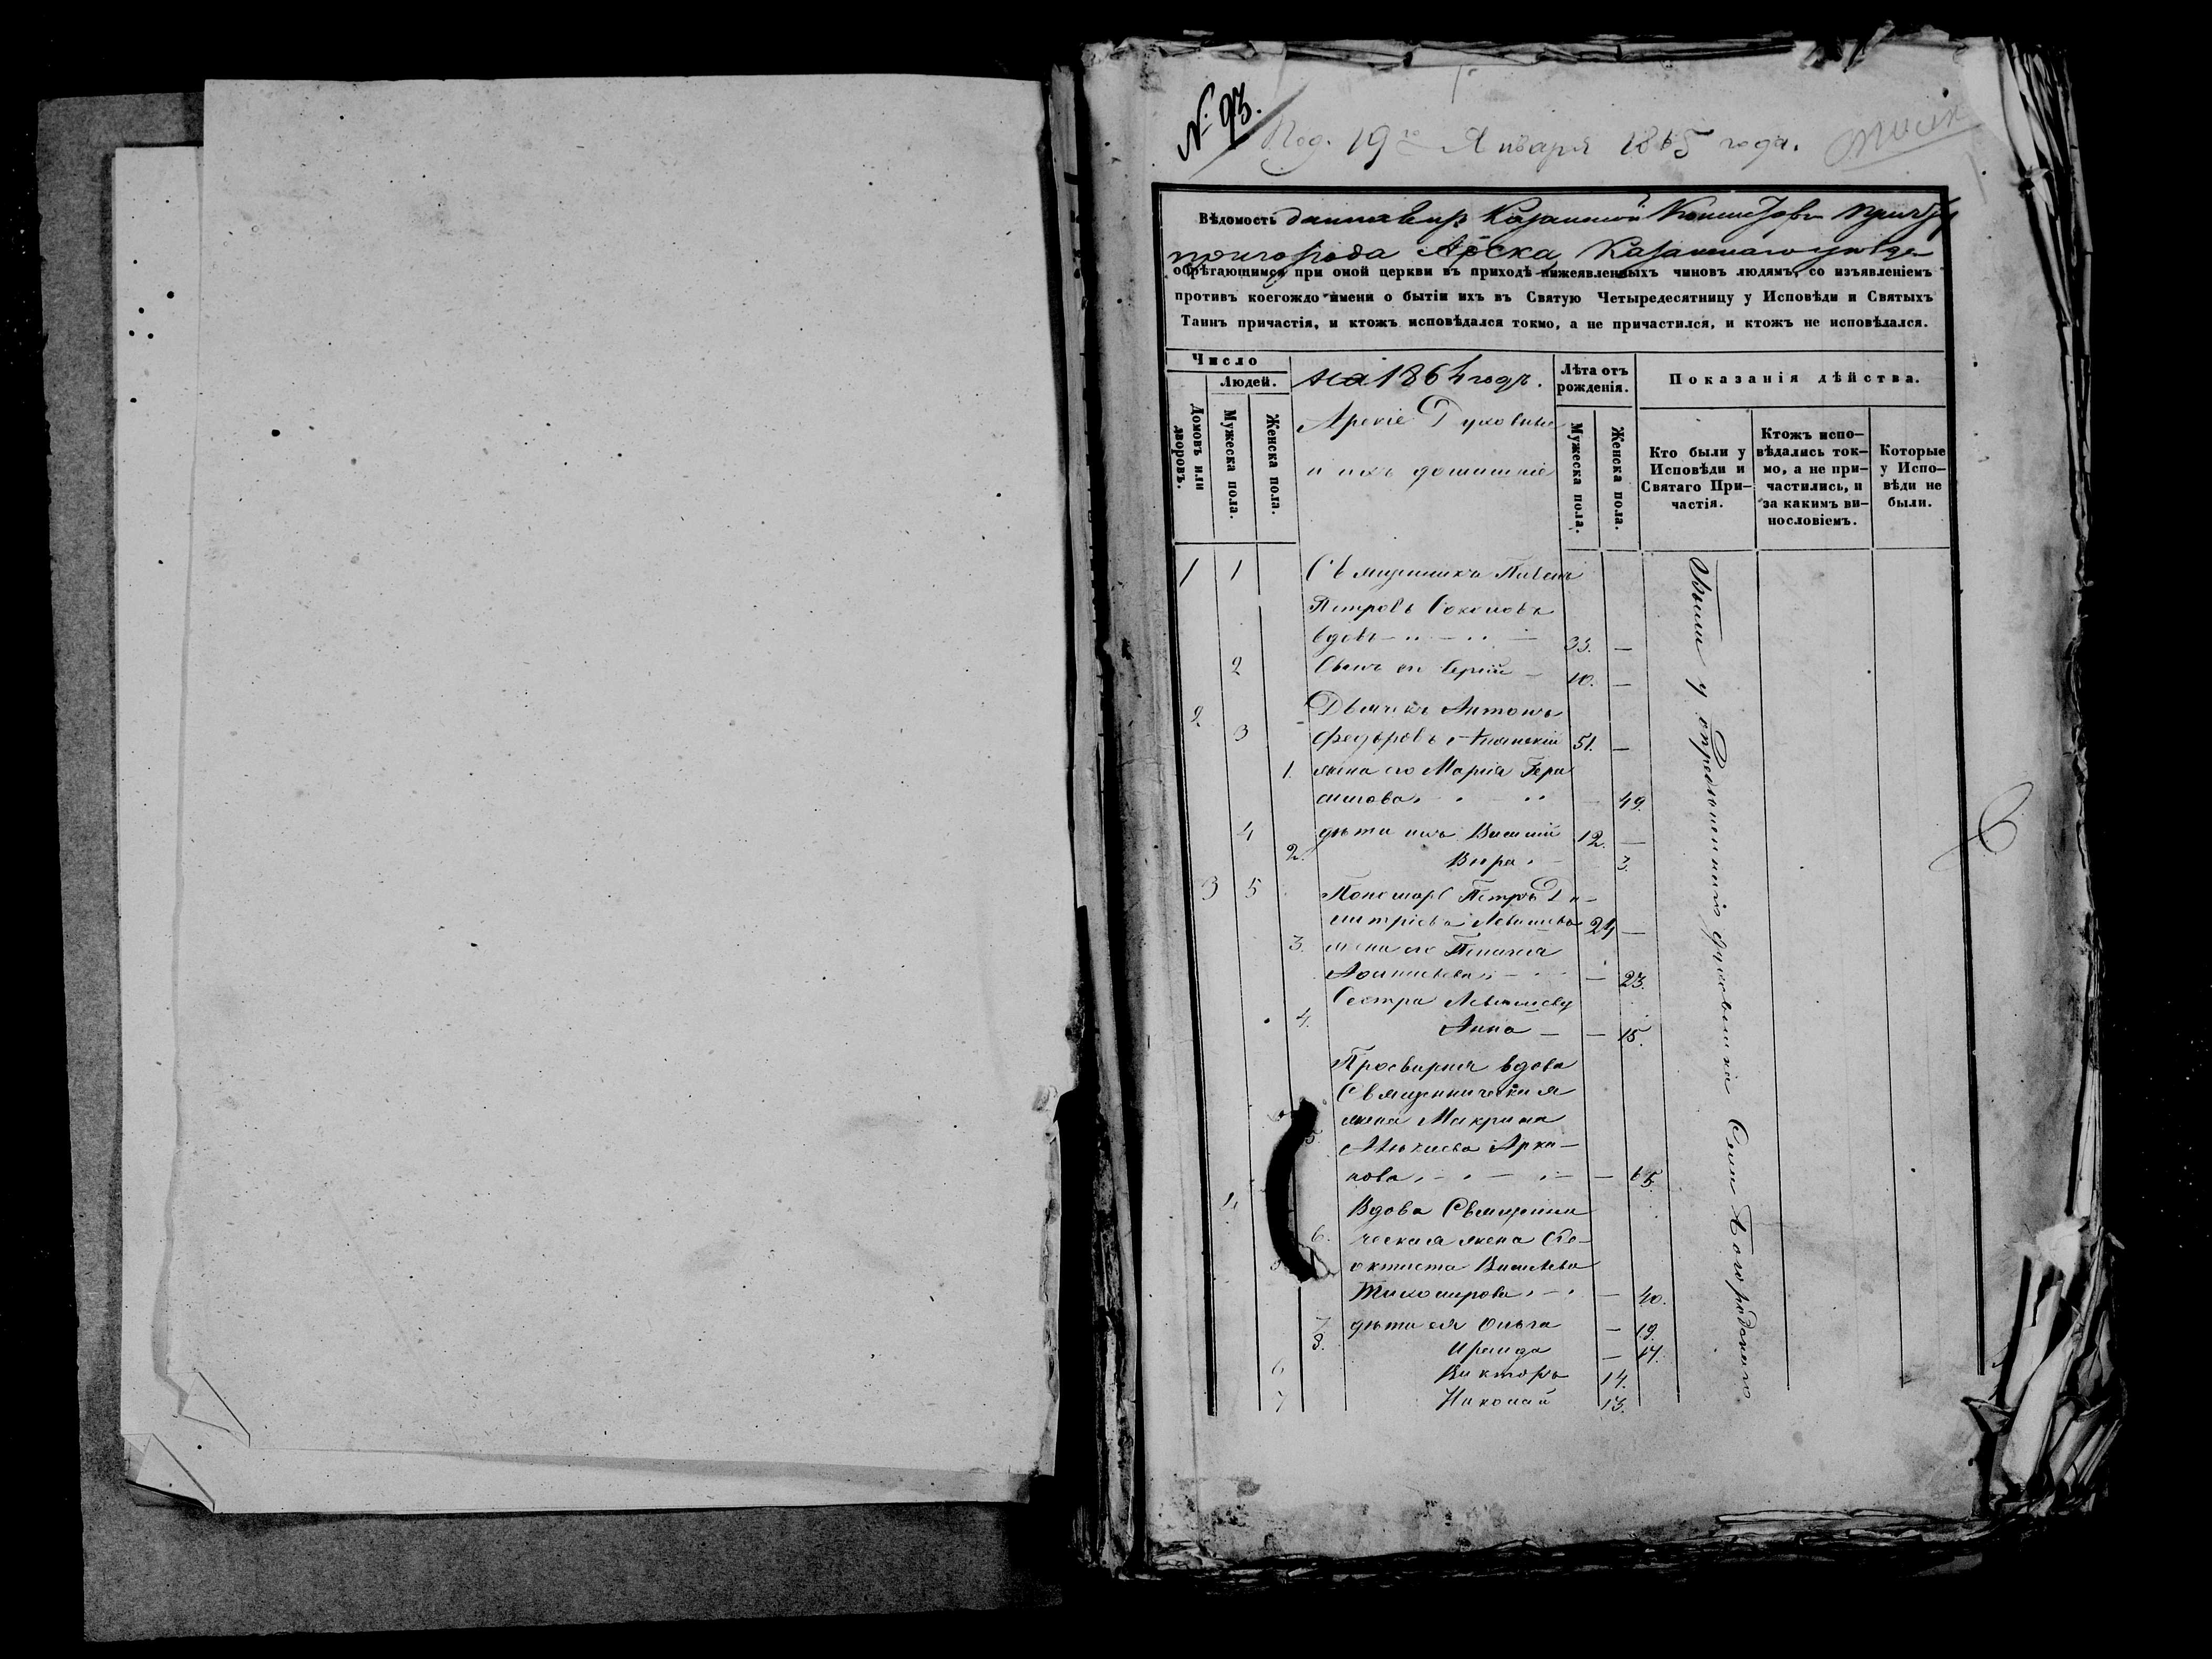 № 93.
Под. 19го Января 1865 года.
Вѣдомость данная изъ Казанской Консисторіи причту
пригорода Арска, Казанскаго уѣзда
обрѣтающимся при оной церкви въ приходѣ нижеявленныхъ чиновъ людямъ, со изъявленіемъ
противъ коегождо имени о бытіи ихъ въ Святую Четыредесятницу у Исповѣди и Святыхъ
Таинъ причастія, и ктожъ исповѣдался токмо, а не причастился, и ктожъ не исповѣдался.
Число
Людей.
Домовъ или дворовъ.
Мужеска пола.
Женска пола.
на 1864 годъ.
Арскіе Духовные
и ихъ домашніе
Лѣта отъ рожденія.
Мужеска пола.
Женска пола.
Показанія дѣйства.
Кто были у Исповѣди и Святаго Причастія.
Ктожъ исповѣдались токмо, а не причастились, и за какимъ винословіемъ.
Которые у Исповѣди не были.
1 1 Священникъ
Петровъ
вдовъ 33. —
2 Сынъ его Сергій — 10. —
2. Дьячекъ Антонъ
3 Федоровъ 51. —
1. жена его Марія Гера
симова — 49.
4 дѣти ихъ Василій 12. —
2. Вѣра — 3.
3 5 Пономарь Петръ Ди-
митріевъ 24 —
3. жена его
— 23.
Сестра
4. Анна — — 15.
Просвирня вдова
Священническая
5. жена Макрина
нова — 65.
4 Вдова Священни
6. ческая жена Ѳе-
октиста Васильева
Тихомирова — 40.
7. дѣти ея Ольга — 19.
8. Ираида — 17.
6 Викторъ 14.
7 Николай 13.
Были у
Села Богородскаго